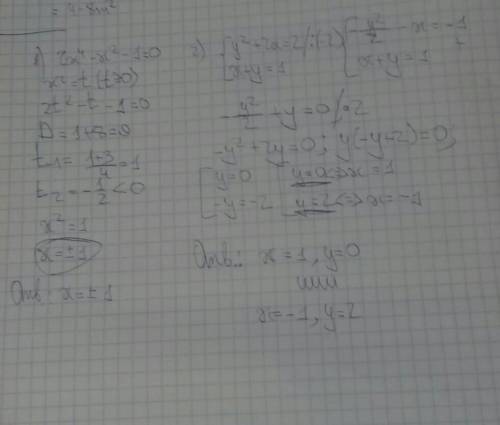 = 4-8m²
1) 2x⁴-x²-1=0
x²=t (t≥0)
2t²-t-1=0
D=1+8=9
t₁=(1+3)/4=1
t₂=-1/2<0
x²=1
x=±1
Отв: x=±1
2) { y²+2x=2 /:(-2)
x+y=1
{ -y²/2 - x=-1
x+y=1
-y²/2+y=0 /·2
-y²+2y=0; y(-y+2)=0;
[ y=0
-y=-2
[ y=0<=>x=1
y=2<=>x=-1
Отв.: x=1, y=0
или
x=-1, y=2